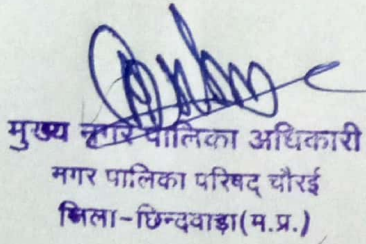 मुख्य नगर पालिका अधिकारी
मगर पालिका परिषद् चौरई
जिला-छिन्दवाड़ा(म.प्र.)